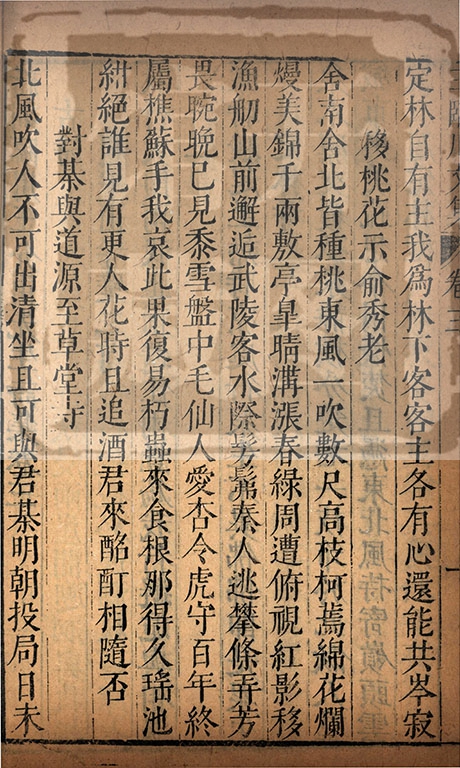 王臨川文集 卷三 一
定林自有主我爲林下客客主各有心還能共岑寂
移桃花示俞秀老
舍南舍北皆種桃東風一吹數尺高枝柯蔫綿花爛
熳美錦千兩敷亭臯晴溝漲春綠周遭俯視紅影移
漁舠山前邂逅武陵客水際髣髴秦人逃攀條弄芳
畏晼晚已見黍雪盤中毛仙人愛杏令虎守百年終
屬樵蘇手我哀此果復易朽蟲來食根那得久瑤池
紺絕誰見有更人花時且追酒君來酩酊相隨否
對棊與道源至草堂寺
北風吹人不可出清坐且可與君棊明朝投局日未